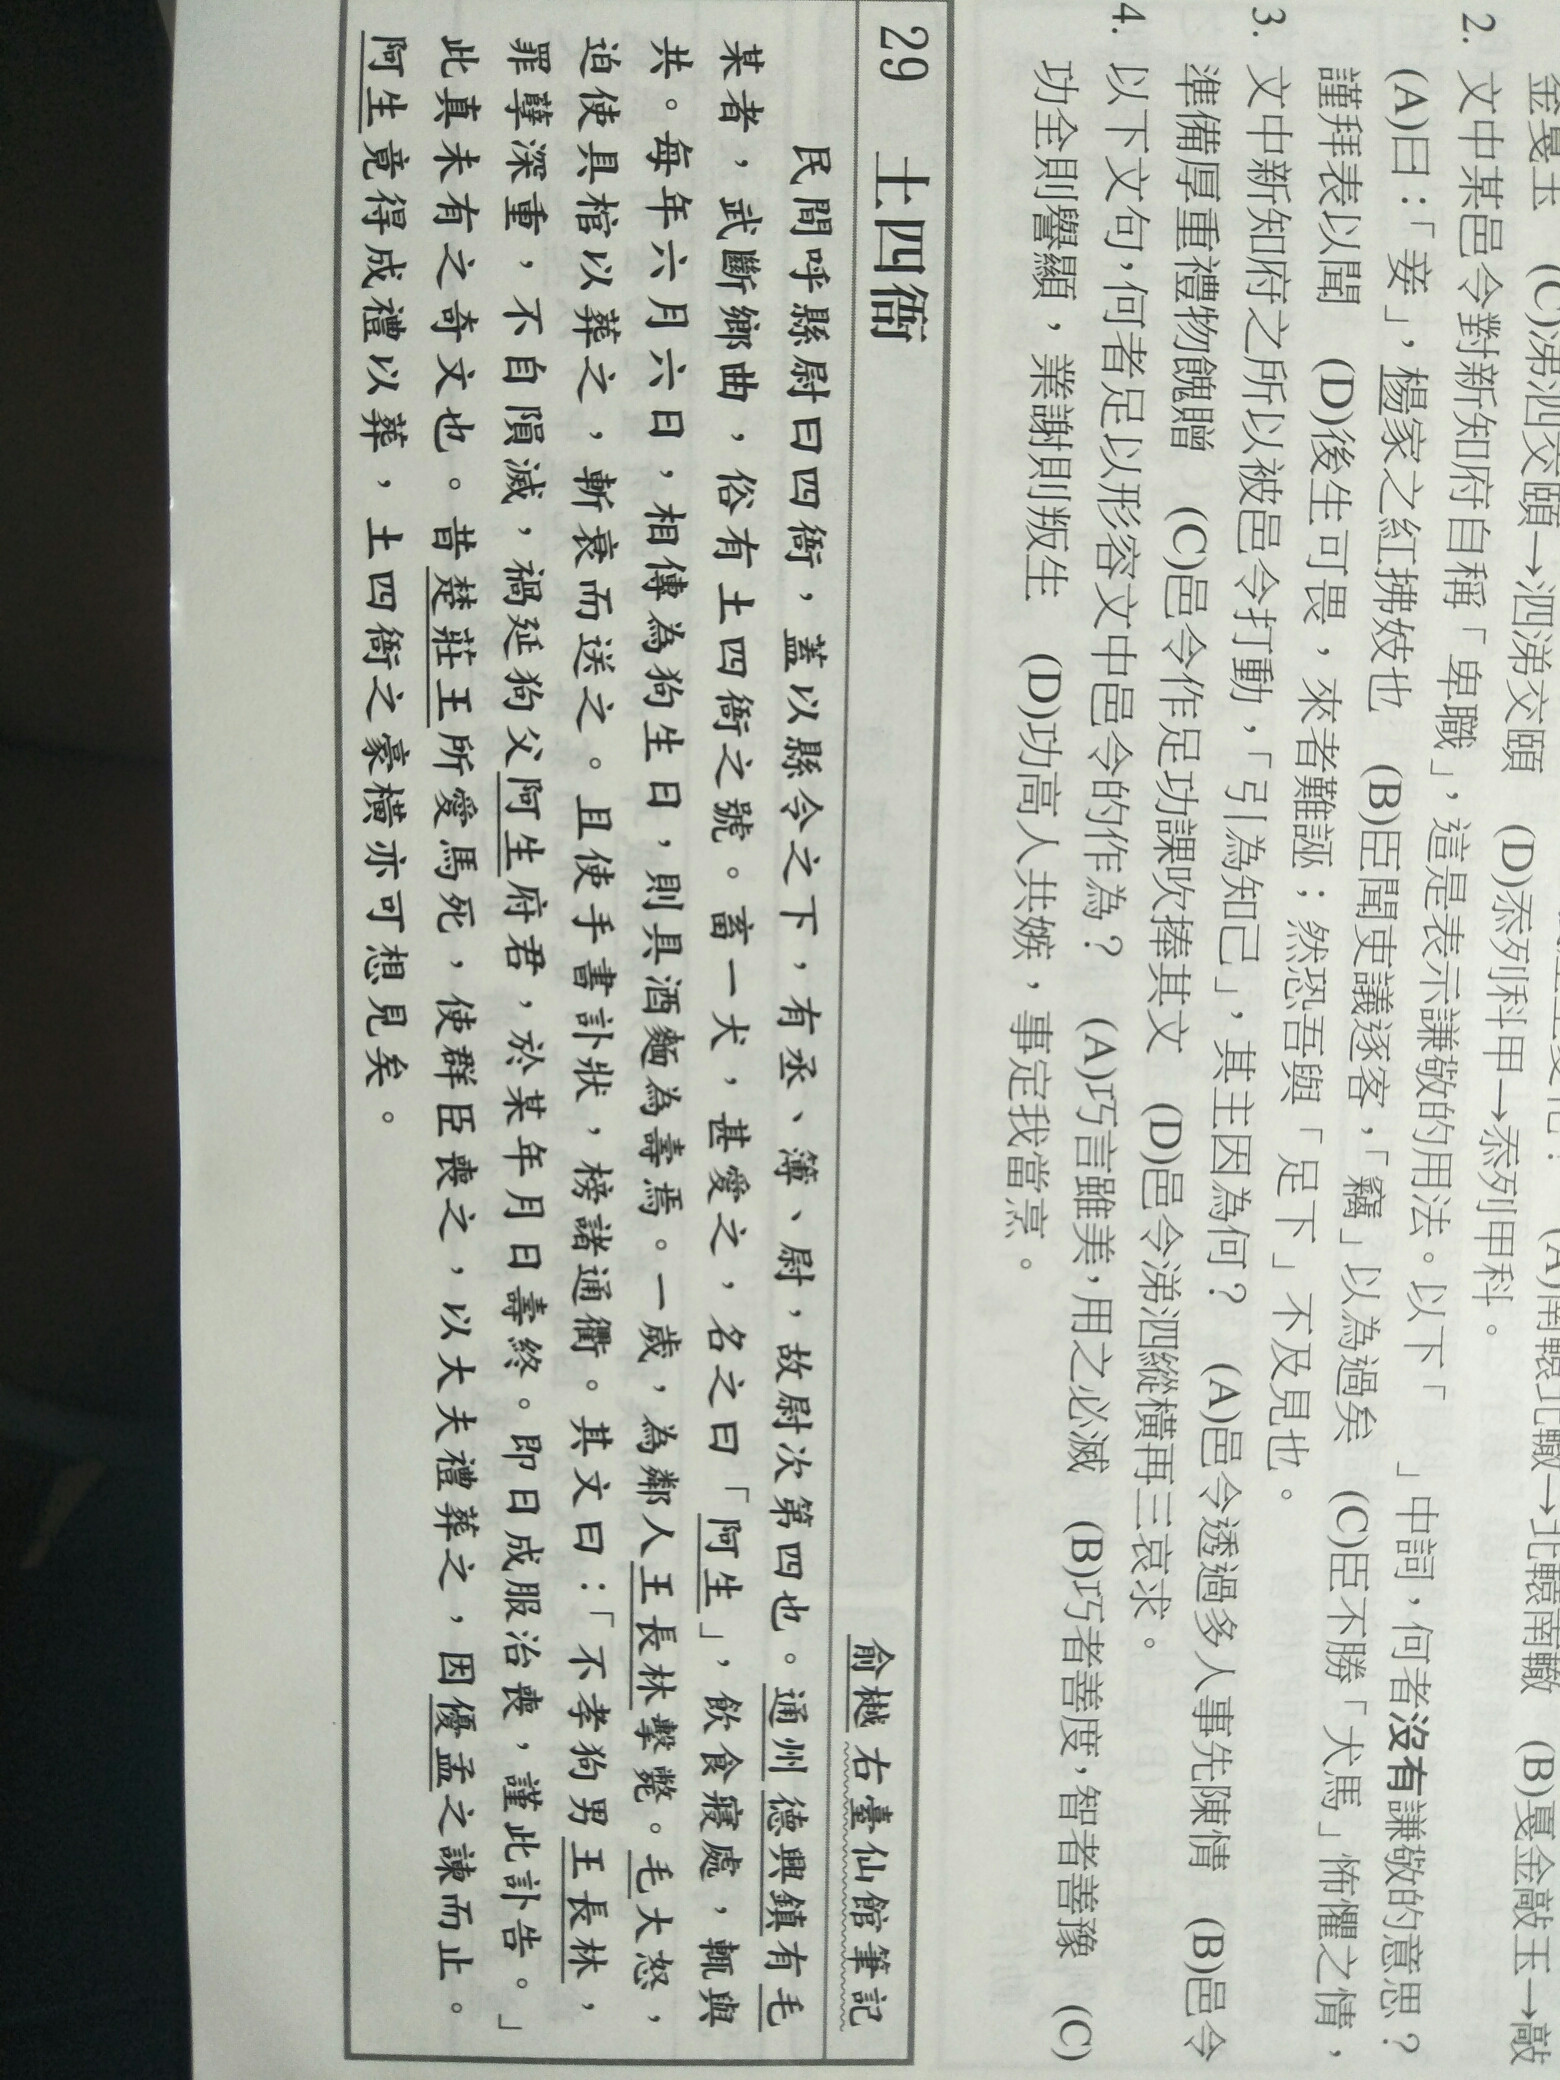 金戛玉　(C)涕泗交頤→泗涕交頤　(D)忝列科甲→忝列甲科。
2. 文中某邑令對新知府自稱「卑職」，這是表示謙敬的用法。以下「　」中詞，何者沒有謙敬的意思？
(A)曰：「妾」，楊家之紅拂妓也　(B)臣聞吏議逐客，「竊」以為過矣　(C)臣不勝「犬馬」怖懼之情，
謹拜表以聞　(D)後生可畏，來者難誣；然恐吾與「足下」不及見也。
3. 文中新知府之所以被邑令打動，「引為知己」，其主因為何？　(A)邑令透過多人事先陳情　(B)邑令
準備厚重禮物餽贈　(C)邑令作足功課吹捧其文　(D)邑令涕泗縱橫再三哀求。
4. 以下文句，何者足以形容文中邑令的作為？　(A)巧言雖美，用之必滅　(B)巧者善度，智者善豫　(C)
功全則譽顯，業謝則叛生　(D)功高人共嫉，事定我當烹。
29　土四衙
俞樾右臺仙館筆記
民間呼縣尉曰四衙，蓋以縣令之下，有丞、簿、尉，故尉次第四也。通州德興鎮有毛
某者，武斷鄉曲，俗有土四衙之號。畜一犬，甚愛之，名之曰「阿生」，飲食寢處，輒與
共。每年六月六日，相傳為狗生日，則具酒麵為壽焉。一歲，為鄰人王長林擊斃。毛大怒，
迫使具棺以葬之，斬衰而送之。且使手書訃狀，榜諸通衢。其文曰：「不孝狗男王長林，
罪孽深重，不自隕滅，禍延狗父阿生府君，於某年月日壽終。即日成服治喪，謹此訃告。」
此真未有之奇文也。昔楚莊王所愛馬死，使群臣喪之，以大夫禮葬之，因優孟之諫而止。
阿生竟得成禮以葬，土四衙之豪橫亦可想見矣。